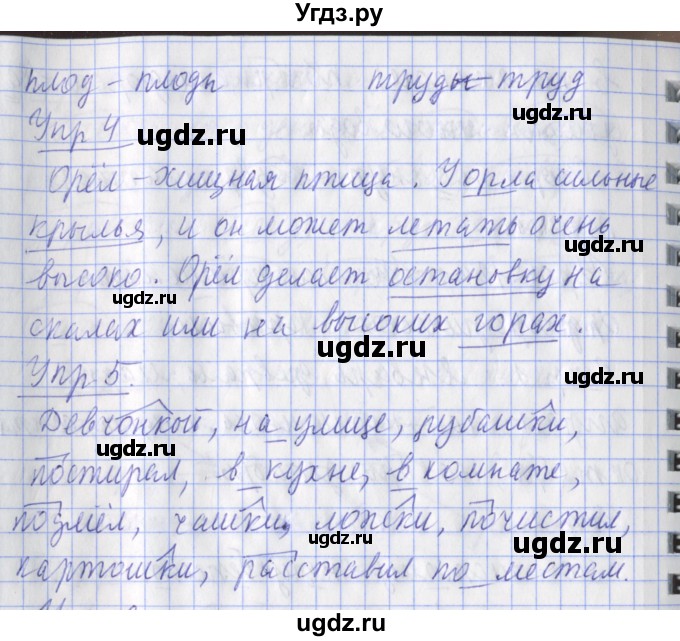 Угдз.ру
плод – плоды труды – труд
ugdz.ru
Упр 4
ugdz.ru
Орёл – хищная птица. У орла сильные
ugdz.ru ugdz.ru
крылья, и он может летать очень
ugdz.ru
высоко. Орёл делает остановку на
ugdz.ru
скалах или на высоких горах.
ugdz.ru
Упр 5.
ugdz.ru
Девчонкой, на улице, рубашки,
ugdz.ru
постирал, в кухне, в комнате,
ugdz.ru ugdz.ru
подмёл, чашки, ложки, почистил,
ugdz.ru
картошки, расставил по местам.
ugdz.ru